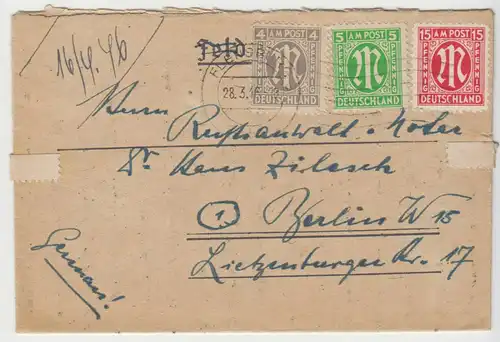 16/4.46
Feld
4 AM POST 4
PFENNIG PFENNIG
DEUTSCHLAND
5 AM POST 5
PFENNIG PFENNIG
DEUTSCHLAND
15 AM POST 15
PFENNIG PFENNIG
DEUTSCHLAND
28.3.46
Herrn
Rechtsanwalt u. Notar
Dr Hans Zilesch
1 Berlin W 15
Lietzenburger Str. 17
German!